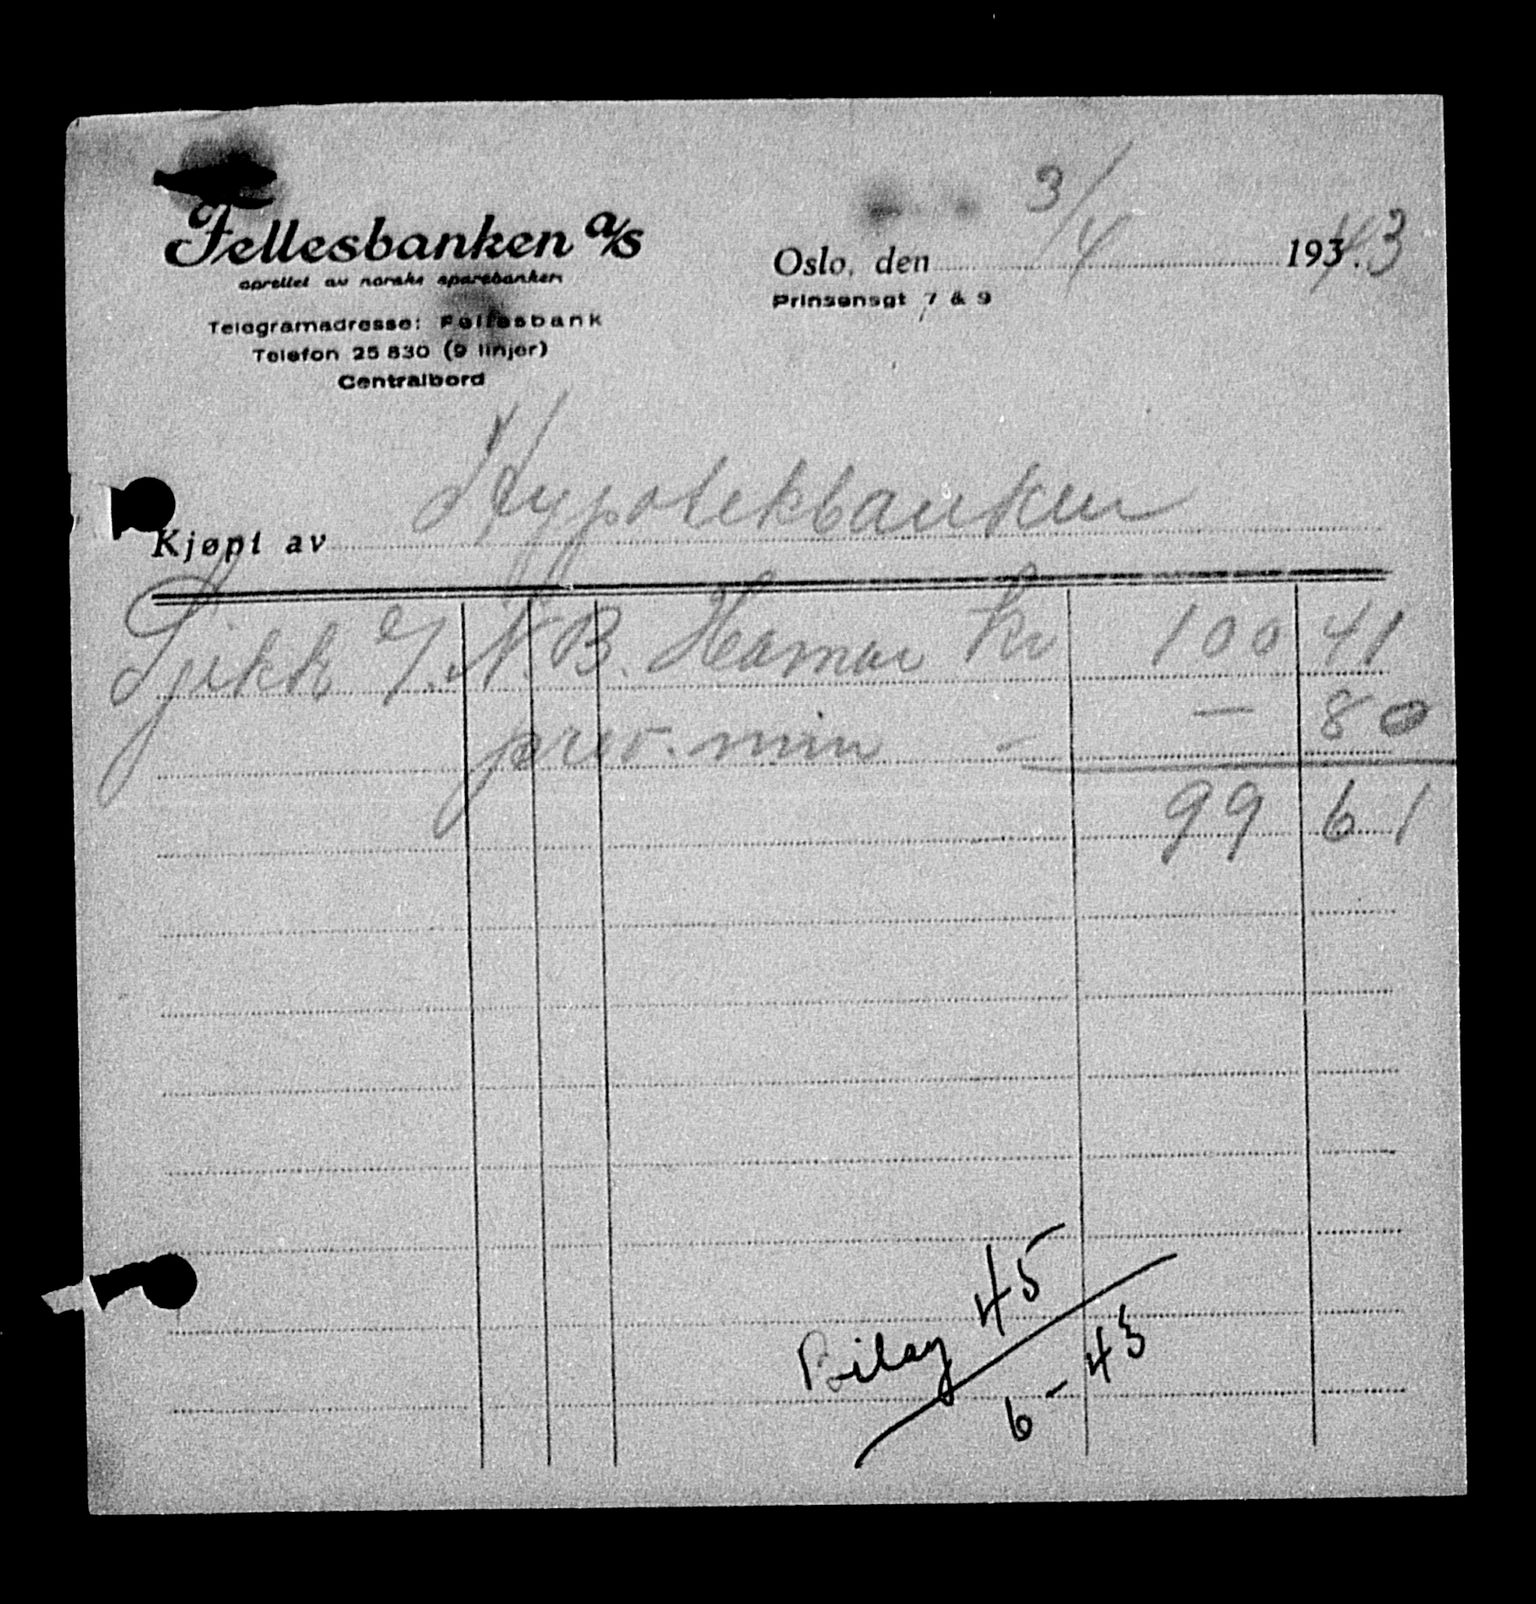 Fellesbanken a/s
oprettet av norske sparebanker
Telegramadresse: Fellesbank
Telefon 25 830 (9 linjer)
Centralbord
Oslo, den 3/4 1943
Prinsensgt 7 & 9
Kjøpt av Hypotekbanken
Sjekk %. N. B. Hamar Kr 100 41
prov. min - — 80
99 61
Bilag 45
6 - 43